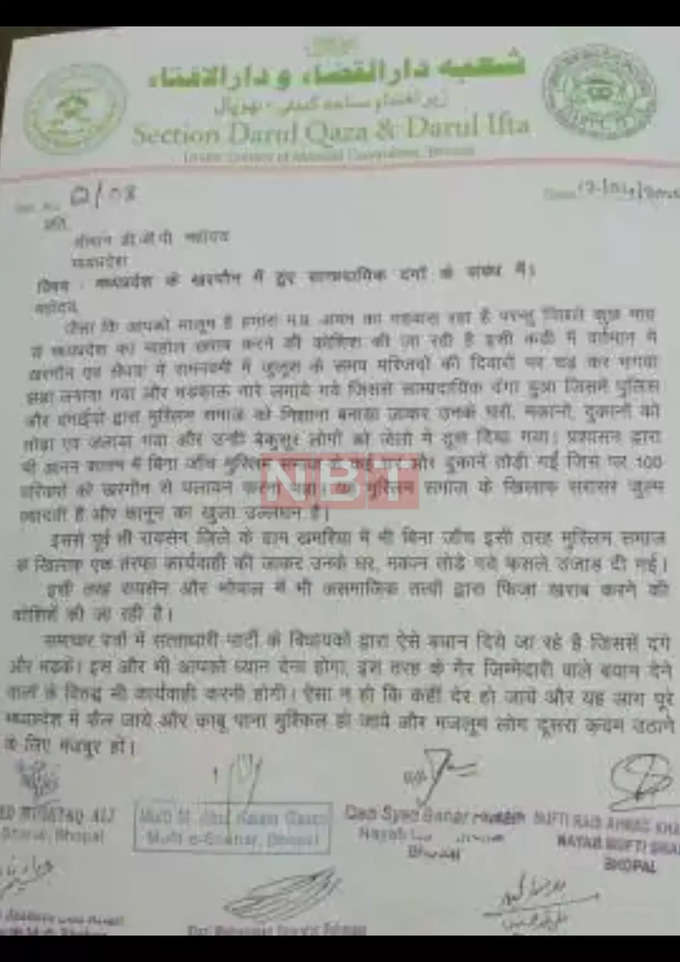 شعبہ دارالقضاء و دارالافتاء
زیر اہتمام مساجد کمیٹی - بھوپال
Section Darul Qaza & Darul Ifta
प्रति,
श्रीमान डी.जी.पी महोदय
मध्यप्रदेश
विषय - मध्यप्रदेश के खरगौन में हुए साम्प्रदायिक दंगों के संबंध में।
महोदय,
जैसा कि आपको मालूम है हमारा म.प्र. अमन का गहवारा रहा है परन्तु पिछले कुछ माह
से मध्यप्रदेश का माहौल खराब करने की कोशिश की जा रही है इसी कड़ी में वर्तमान में
खरगौन एवं सेंधवा में रामनवमी में जुलूस के समय मस्जिदों की दिवारों पर चढ कर भगवा
झंडा लगाया गया और भड़काऊ नारे लगाये गये जिससे साम्प्रदायिक दंगा हुआ जिसमें पुलिस
और दंगाईयों द्वारा मुस्लिम समाज को निशाना बनाया जाकर उनके घरों, मकानों, दुकानों को
तोड़ा एवं जलाया गया और उन्हीं बेकुसूर लोगों को जेलों में ठूस दिया गया। प्रशासन द्वारा
भी आनन फानन में बिना जाँच मुस्लिम समाज के कई घर और दुकानें तोड़ी गई जिस पर 100
परिवारों को खरगौन से पलायन करना पड़ा। यह मुस्लिम समाज के खिलाफ सरासर जुल्म
ज्यादती है और कानून का खुला उल्लंघन है।
NBT
इससे पूर्व भी रायसेन जिले के ग्राम खमरिया में भी बिना जाँच इसी तरह मुस्लिम समाज
के खिलाफ एक तरफा कार्यवाही की जाकर उनके घर, मकान तोड़े गये फसले उजाड़ दी गई।
इसी तरह रायसेन और भोपाल में भी असमाजिक तत्वों द्वारा फिजा खराब करने की
कोशिशें की जा रही है।
समाचार पत्रों में सत्ताधारी पार्टी के विधायकों द्वारा ऐसे बयान दिये जा रहे है जिससें दंगे
और भडकें। इस और भी आपको ध्यान देना होगा, इस तरह के गैर जिम्मेदारी वाले बयान देने
वालों के विरुद्ध भी कार्यवाही करनी होगी। ऐसा न हो कि कहीं देर हो जाये और यह आग पूरे
मध्यप्रदेश में फैल जाये और काबू पाना मुश्किल हो जाये और मजलूम लोग दूसरा कदम उठाने
के लिए मजबूर हो।
MUSTAQ ALI
Bhopal
Mufti M. Abul Kalam Qasmi
Mufti-e-Shahar, Bhopal
Qazi Syed Babar Hussain
Nayab
Bhopal
MUFTI RAIS AHMAD KHA
NAYAB MUFTI SHA
BHOPAL
Mohammad